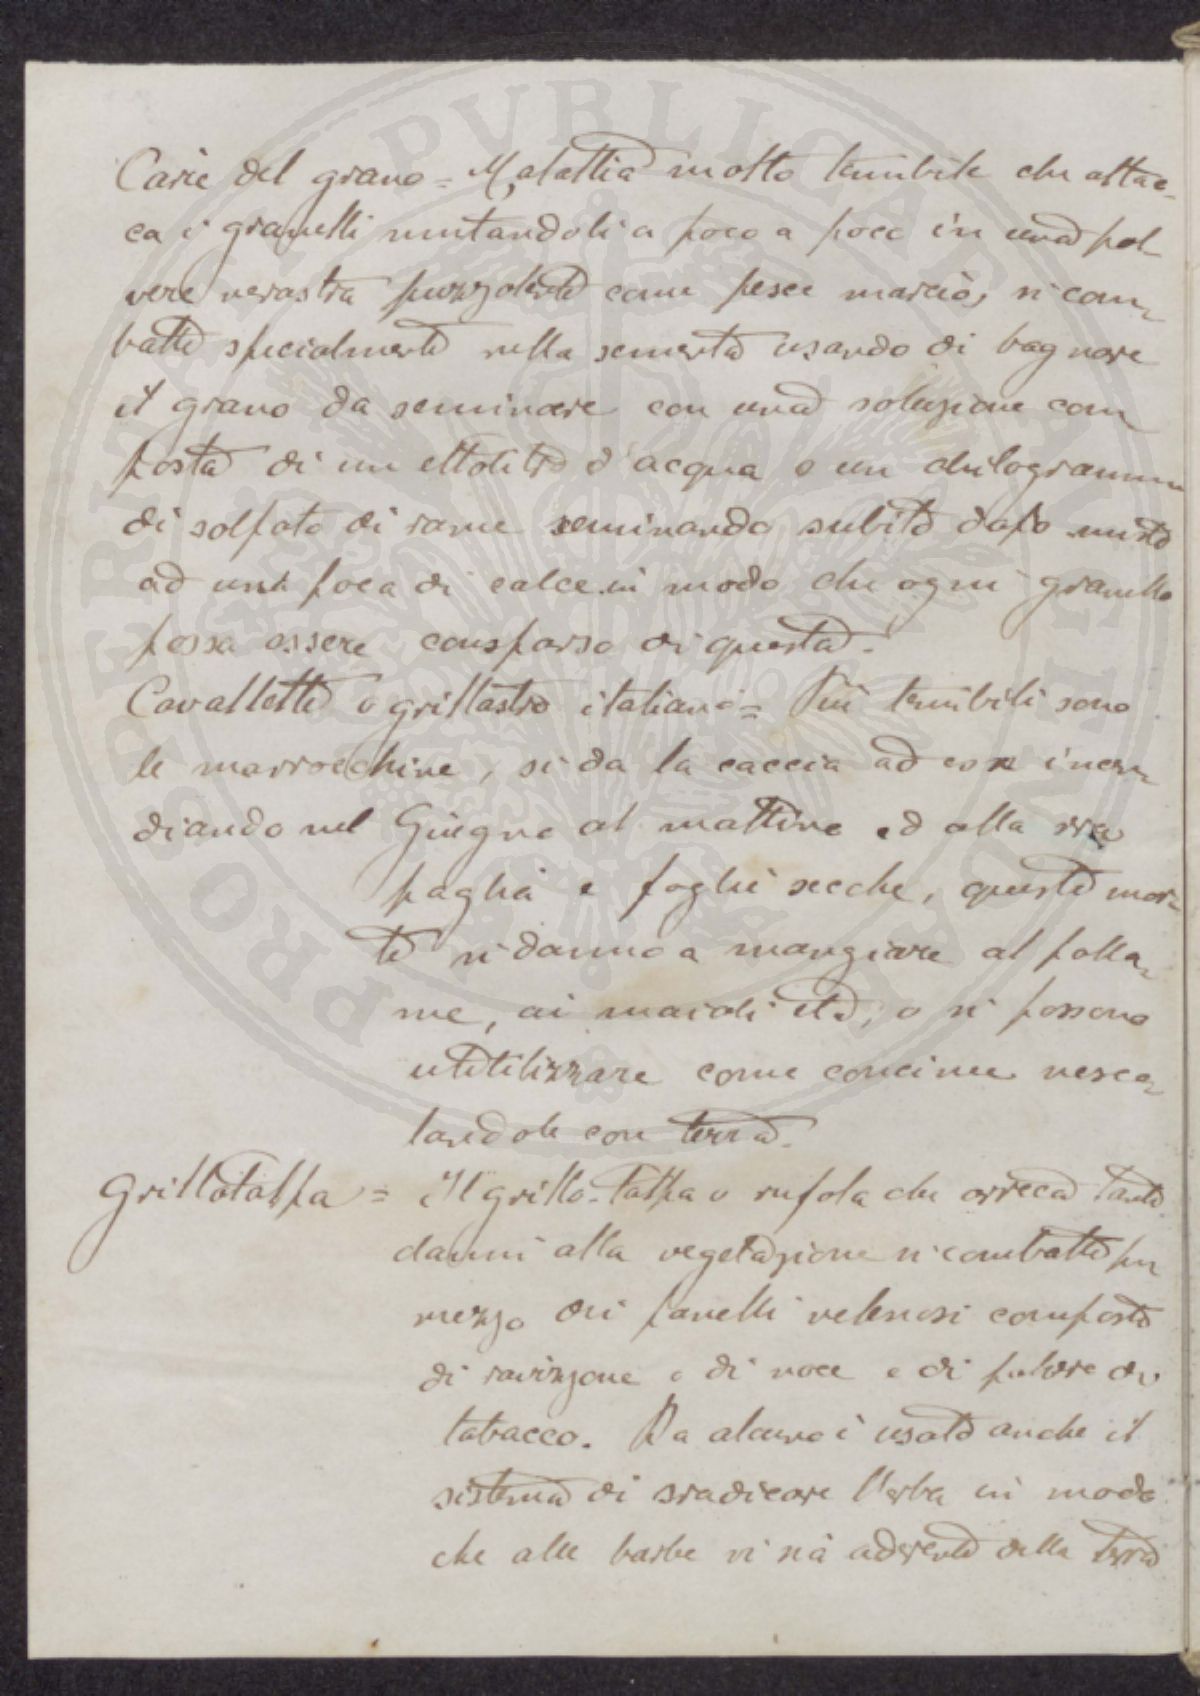 PROSPERITATI PVBLICAE AVGENDAE
Carie del grano = Malattia molto temibile che attac-
ca i granelli mutandoli a poco a poco in una pol-
vere nerastra puzzolente come pesce marcio, si com-
batte specialmente nella sementa usando di bagnare
il grano da seminare con una soluzione com
posta di un ettolitro d'acqua e un chilogrammo
di solfato di rame seminando subito dopo misto
ad una poca di calce in modo che ogni granello
possa essere consparso di questa.
Cavallette o grillastro italiano = Più temibili sono
le marrocchine, si da la caccia ad esse incen-
diando nel Giugno al mattino ed alla sera
paglia e foglie secche, queste mor-
te si danno a mangiare al polla-
me, ai maiali etc, o si possono
utitilizzare come concime mesco-
landole con terra.
Grillotalpa = Il grillo-talpa o rufola che arreca tanti
danni alla vegetazione si combatte per
mezzo dei panelli velenosi composti
di ravizzone e di noce e di polvere di
tabacco. Da alcuno è usato anche il
sistema di sradicare l'erba in modo
che alle barbe vi sia aderente della terra